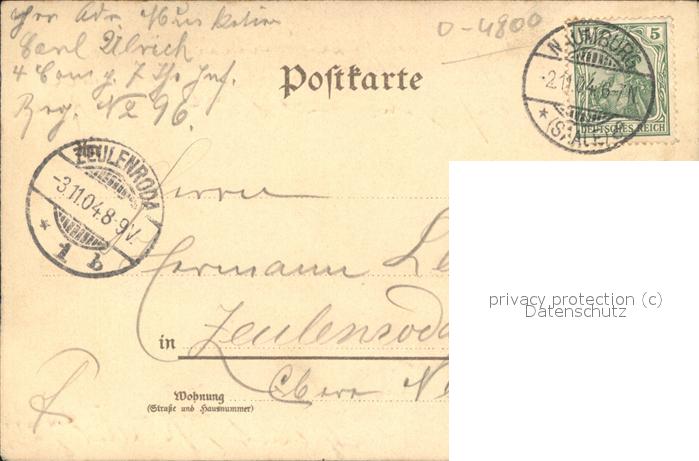 Adr. Musketier
Carl Ulrich
4 Comp. 7 Th. Inf.
Reg. No 96.
0-4800
Postkarte
5
DEUTSCHES REICH
NAUMBURG
-2.11.04.6-7N.
* (SAALE)
ZEULENRODA
-3.11.04.8-9V.
* 1 b
Herrn
Hermann
in Zeulenroda
Wohnung
(Straße und Hausnummer)
Obere
privacy protection (c)
Datenschutz